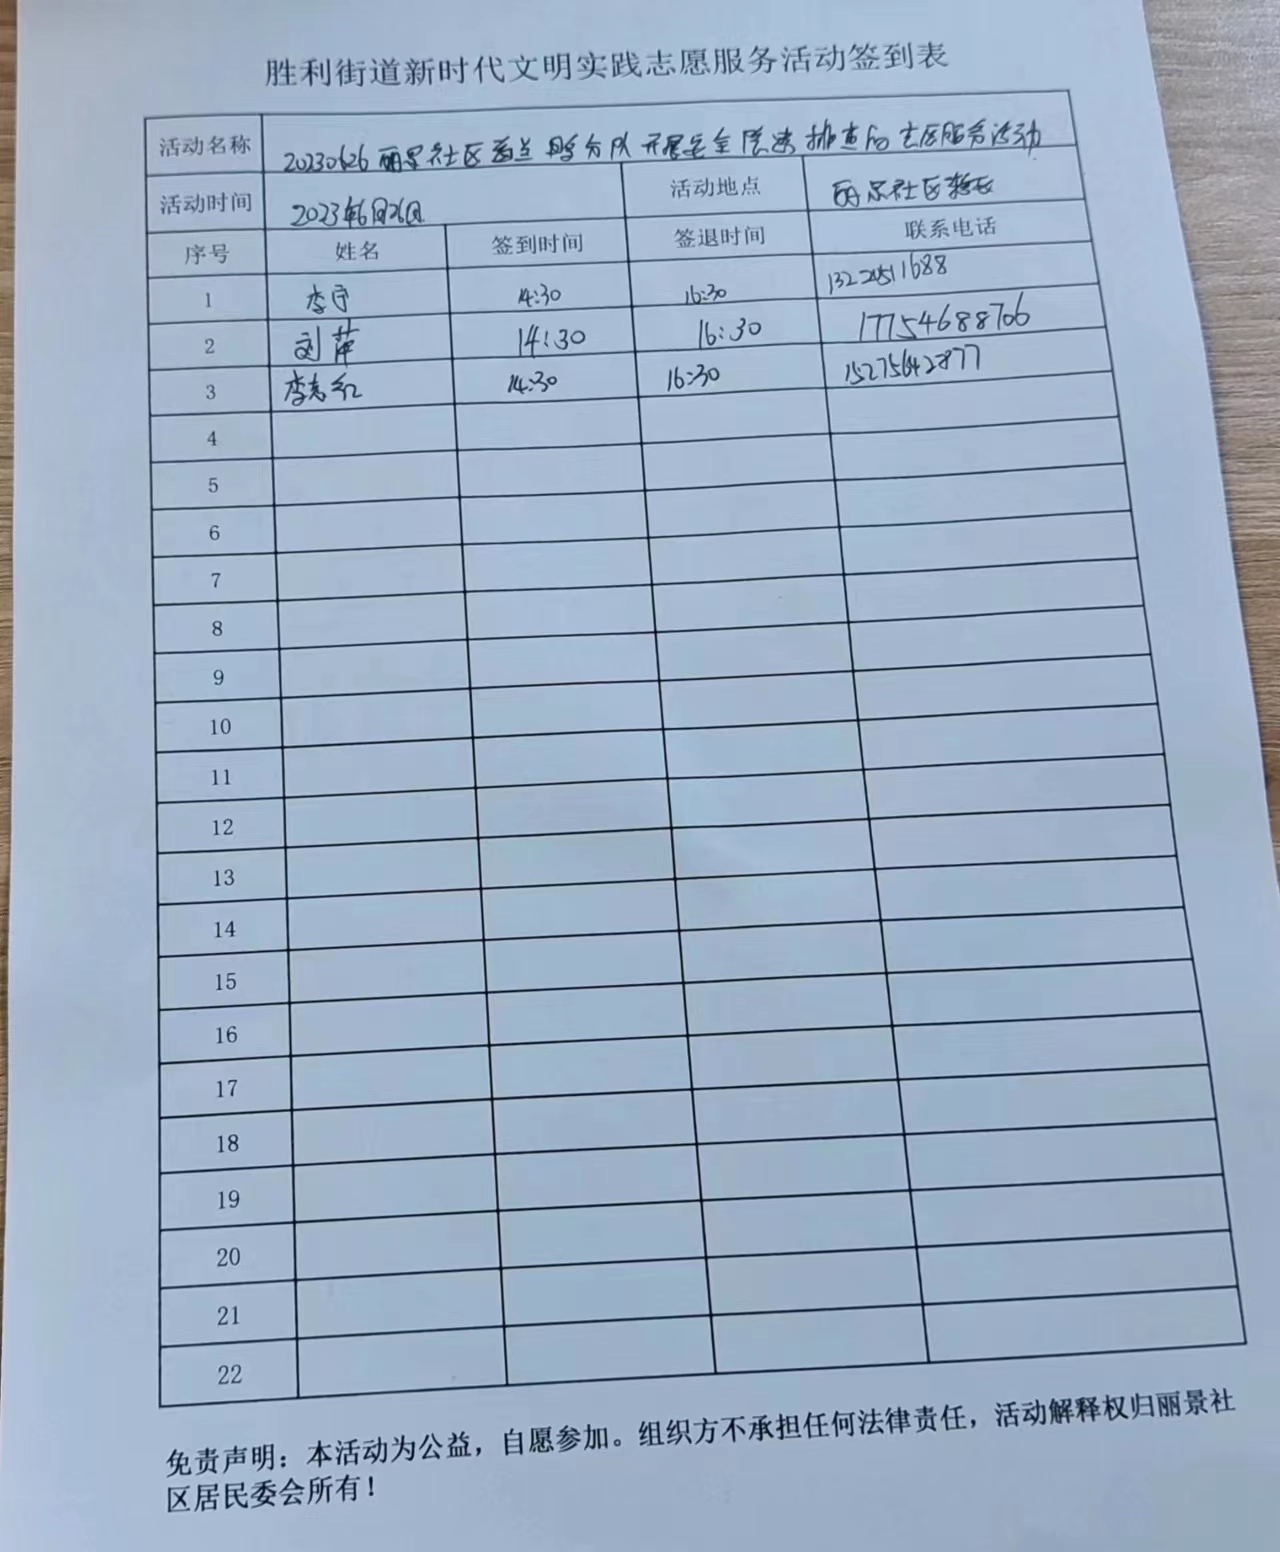 胜利街道新时代文明实践志愿服务活动签到表
活动名称 20230626丽景社区 分队开展安全隐患排查 志愿服务活动
活动时间 2023年6月26日 活动地点 丽景社区辖区
序号 姓名 签到时间 签退时间 联系电话
1 李宁 14:30 16:30
2 刘萍 14:30 16:30 17754688706
3 李志红 14:30 16:30 15275642877
4
5
6
7
8
9
10
11
12
13
14
15
16
17
18
19
20
21
22
免责声明：本活动为公益，自愿参加。组织方不承担任何法律责任，活动解释权归丽景社
区居民委会所有！